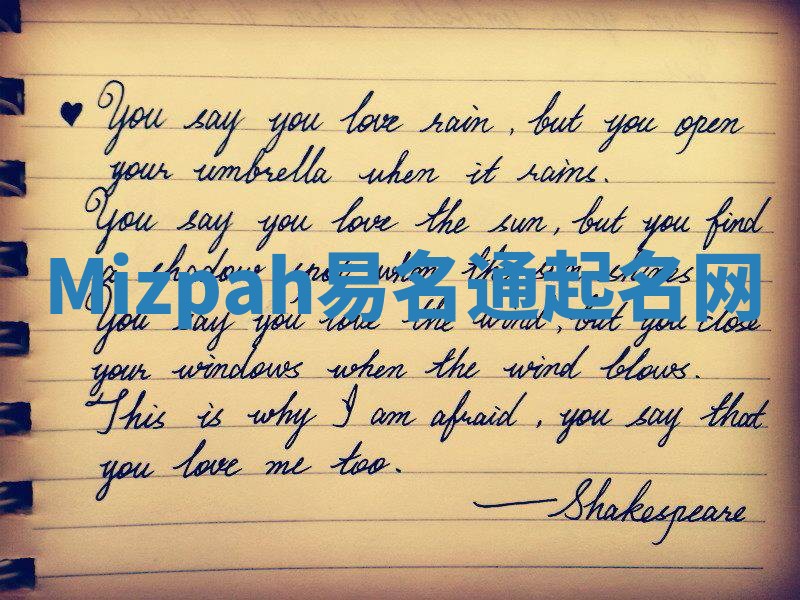 ♥ You say you love rain, but you open
your umbrella when it rains.
You say you love the sun, but you find
a shadow spot when the sun shines
Mizpah易名通起名网
You say you love the wind, but you close
your windows when the wind blows.
This is why I am afraid, you say that
you love me too.
—Shakespeare